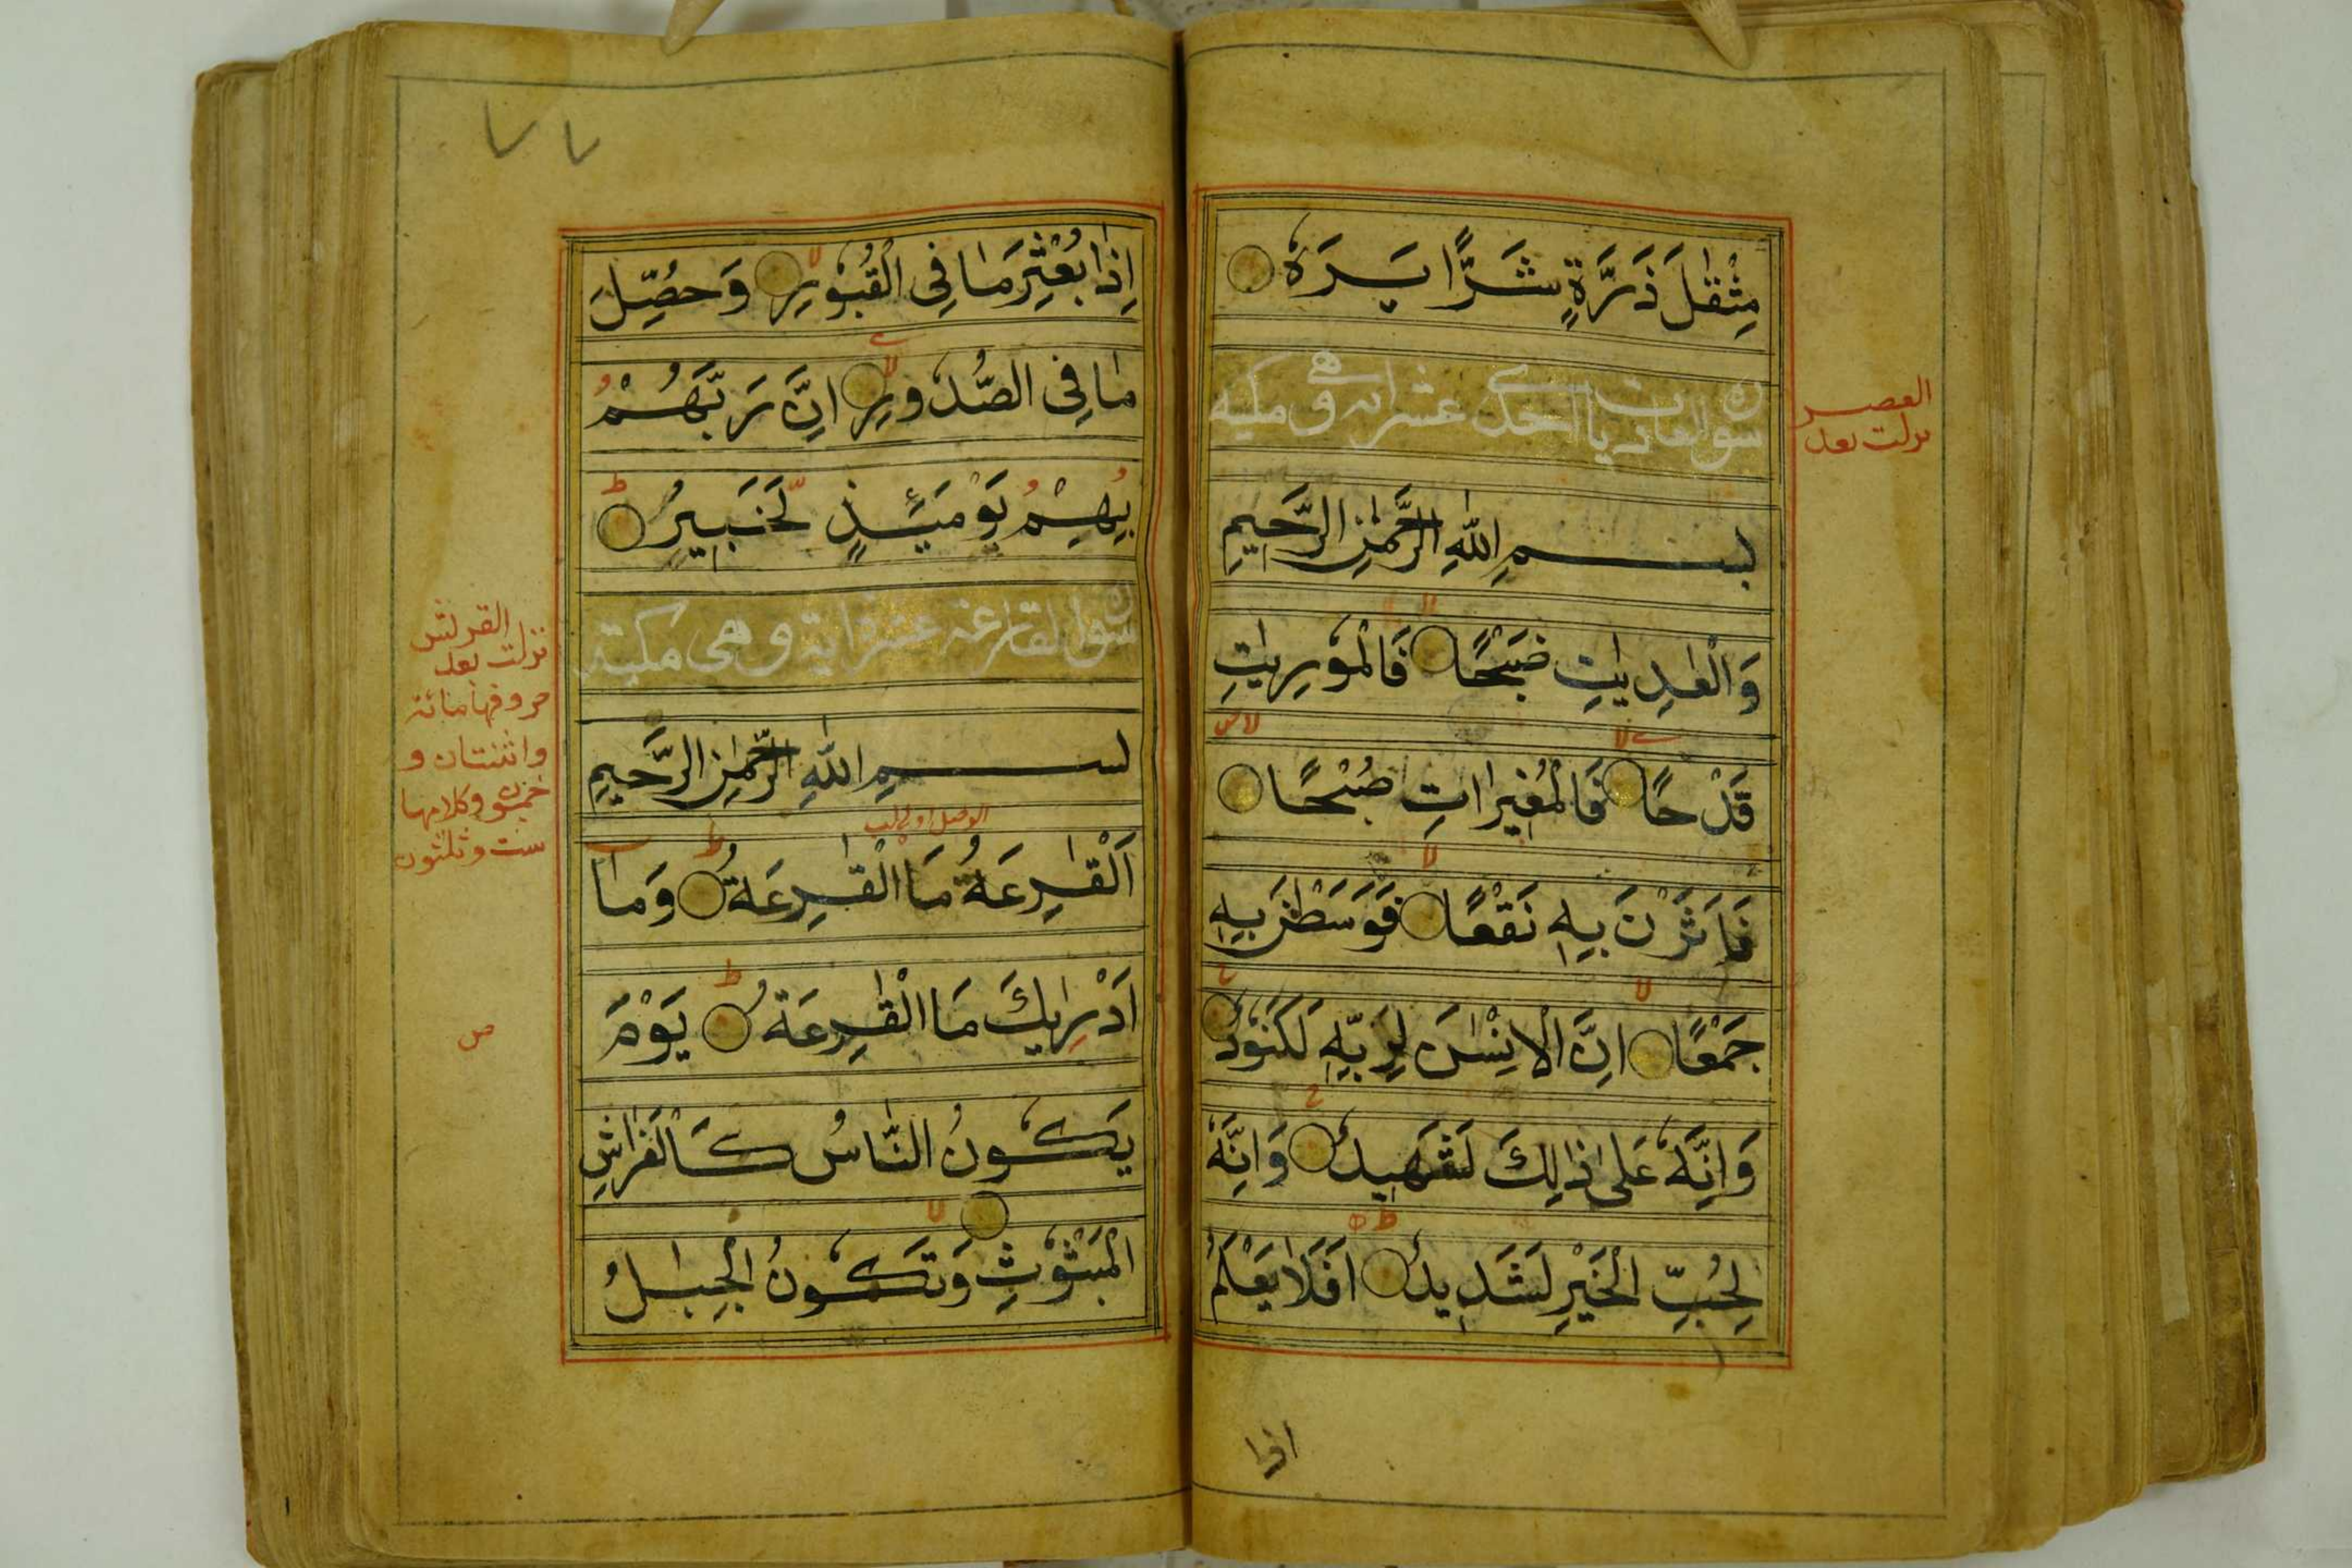 مِثْقٰلَ ذَرَّةٍ شَرًّا يَرَهٗ
سورة العاديات احدى عشر اية وهي مكية
العصر
نزلت بعد
بسم اللهِ الرَّحْمٰنِ الرَّحِيمِ
وَالْعٰدِيٰتِ ضَبْحًا فَالْمُوْرِيٰتِ
قَدْحًا فَالْمُغِيْرٰاتِ صُبْحًا
فَاَثَرْنَ بِهٖ نَقْعًا فَوَسَطْنَ بِهٖ
جَمْعًا اِنَّ الْاِنْسٰنَ لِرَبِّهٖ لَكَنُوْدٌ
وَاِنَّهٗ عَلىٰ ذٰلِكَ لَشَهِيدٌ وَاِنَّهٗ
لِحُبِّ الْخَيْرِ لَشَدِيدٌ اَفَلَا يَعْلَمُ
اذا
٧٧
اِذَا بُعْثِرَ مَا فِى الْقُبُوْرِ وَحُصِّلَ
مَا فِى الصُّدُورِ اِنَّ رَبَّهُمْ
بِهِمْ يَوْمَئِذٍ لَّخَبِيرٌ
سورة القارعة عشر اية وهى مكية
القريش
نزلت بعد
حروفها مائة
واثنتان و
خمسون وكلامها
ست وثلثون
بسم اللهِ الرَّحْمٰنِ الرَّحِيمِ
الوصل اولى
اَلْقٰرِعَةُ مَا الْقٰرِعَةُ وَمَا
اَدْرٰيكَ مَا الْقٰرِعَةُ يَوْمَ
ص
يَكُونُ النَّاسُ كَالْفَرٰاشِ
الْمَبْثُوْثِ وَتَكُونُ الْجِبٰلُ